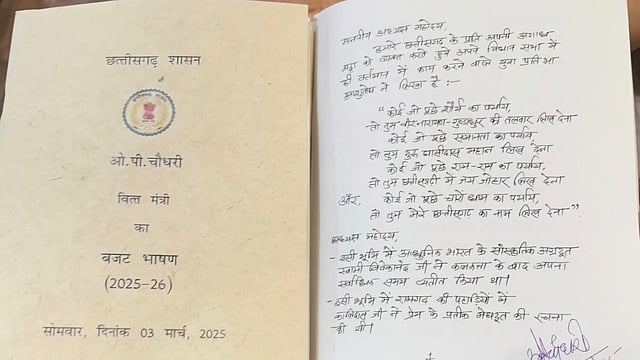 छत्तीसगढ़ शासन
ओ.पी.चौधरी
वित्त मंत्री
का
बजट भाषण
(2025-26)
सोमवार, दिनांक 03 मार्च, 2025
माननीय अध्यक्ष महोदय,
हमारे छत्तीसगढ़ के प्रति अपनी अगाध
श्रद्धा को व्यक्त करते हुये अपने विधान सभा में
ही वर्तमान में काम करने वाले युवा प्रतिभा
ने लिखा है :-
"कोई जो पूछे शौर्य का पर्याय,
तो तुम वीरनारायण-गुण्डाधुर की तलवार लिख देना
कोई जो पूछे समानता का पर्याय
तो तुम गुरु घासीदास महान लिख देना
कोई जो पूछे राम-राम का पर्याय,
तो तुम छत्तीसगढ़ी में जय जोहार लिख देना
और, कोई जो पूछे चारों धाम का पर्याय,
तो तुम मेरे छत्तीसगढ़ का नाम लिख देना"।
अध्यक्ष महोदय,
- इसी भूमि में आधुनिक भारत के सांस्कृतिक अग्रदूत
स्वामी विवेकानंद जी ने कलकत्ता के बाद अपना
सर्वाधिक समय व्यतीत किया था।
- इसी भूमि में रामगढ़ की पहाड़ियों में
कालिदास जी ने प्रेम के प्रतीक मेघदूत की रचना
की थी।